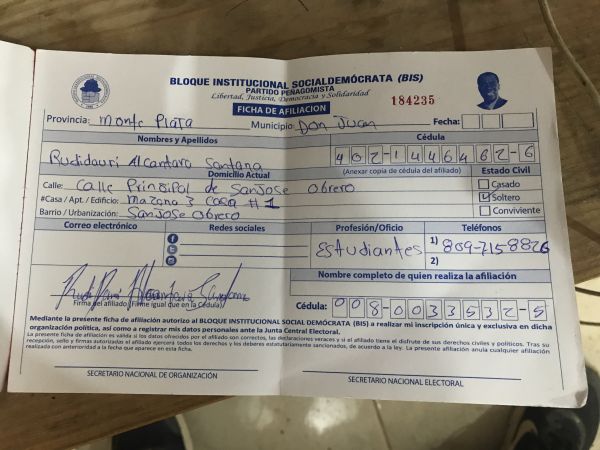 BLOQUE INSTITUCIONAL SOCIALDEMÓCRATA (BIS)
PARTIDO PEÑAGOMISTA
Libertad, Justicia, Democracia y Solidaridad
FICHA DE AFILIACION
184235
Provincia: Monte Plata Municipio: Don Juan Fecha:
Nombres y Apellidos Cédula
Rudidauri Alcantara Santana 402-1446462-6
(Anexar copia de cédula del afiliado)
Domicilio Actual Estado Civil
Calle: Calle Prinsipal de San Jose Obrero Casado
#Casa / Apt. / Edificio: Mazona 3 Casa # 1 Soltero
Barrio / Urbanización: San Jose Obrero Conviviente
Correo electrónico Redes sociales Profesión/Oficio Teléfonos
Estudiantes 1) 809-715-8826
2)
Nombre completo de quien realiza la afiliación
Firma del afiliado (Firme igual que en la Cédula) Cédula: 008-0033532-5
Mediante la presente ficha de afiliación autorizo al BLOQUE INSTITUCIONAL SOCIAL DEMÓCRATA (BIS) a realizar mi inscripción única y exclusiva en dicha
organización política, así como a registrar mis datos personales ante la Junta Central Electoral.
La presente ficha de afiliación es valida si los datos ofrecidos por el afiliado son correctos, las declaraciones veraces y si el afiliado tiene el disfrute de sus derechos civiles y políticos. Tras su
recepción, sello y firmas autorizadas el afiliado operará todos los derechos y los deberes estatutariamente sancionados, de acuerdo a la ley. La presente afiliación anula cualquier afiliación
realizada con anterioridad a la fecha que aparece en esta ficha.
SECRETARIO NACIONAL DE ORGANIZACIÓN SECRETARIO NACIONAL ELECTORAL